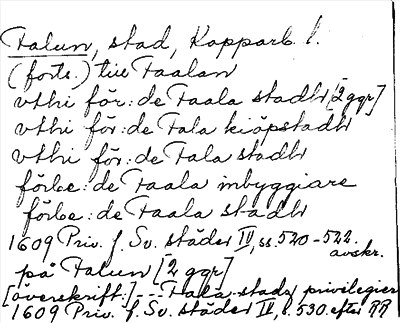 Falun, stad, Kopparb. l.
(forts.) till Faalan
vthi för: de Faala stadh [2 ggr]
vthi för: de Fala kiöpstadh
vthi för: de Fala stadh
förbe: de Faala inbyggiare
förbe: de Faala stadh
1609 Priv. f. Sv. städer IV, ss. 520-522
avskr.
på Falun [2 ggr]
[överskrift:] --- Fala stadz privilegier
1609 Priv. f. Sv. städer IV, s. 530. efter RR